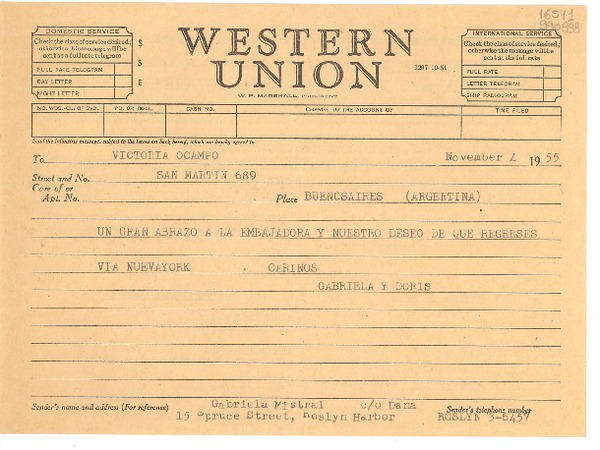 16511
DOMESTIC SERVICE
Check the class of service desired;
otherwise this message will be
sent as a full rate telegram
FULL RATE TELEGRAM
DAY LETTER
NIGHT LETTER
$
S
E
WESTERN
UNION
1207 10-51
W. P. MARSHALL, PRESIDENT
INTERNATIONAL SERVICE
Check the class of service desired;
otherwise the message will be
sent at the full rate
FULL RATE
LETTER TELEGRAM
SHIP RADIOGRAM
NO. WDS.-CL. OF SVC. PD. OR COLL. CASH NO. CHARGE TO THE ACCOUNT OF TIME FILED
Send the following message, subject to the terms on back hereof, which are hereby agreed to
To VICTORIA OCAMPO November 4 1955
Street and No. SAN MARTIN 689
Care of or
Apt. No. Place BUENOSAIRES (ARGENTINA)
UN GRAN ABRAZO A LA EMBAJADORA Y NUESTRO DESEO DE QUE REGRESES
VIA NUEVAYORK . CARINOS
GABRIELA Y DORIS
Gabriela Mistral c/o Dana
Sender's name and address (For reference) Sender's telephone number
15 Spruce Street, Roslyn Harbor ROSLYN 3-6457